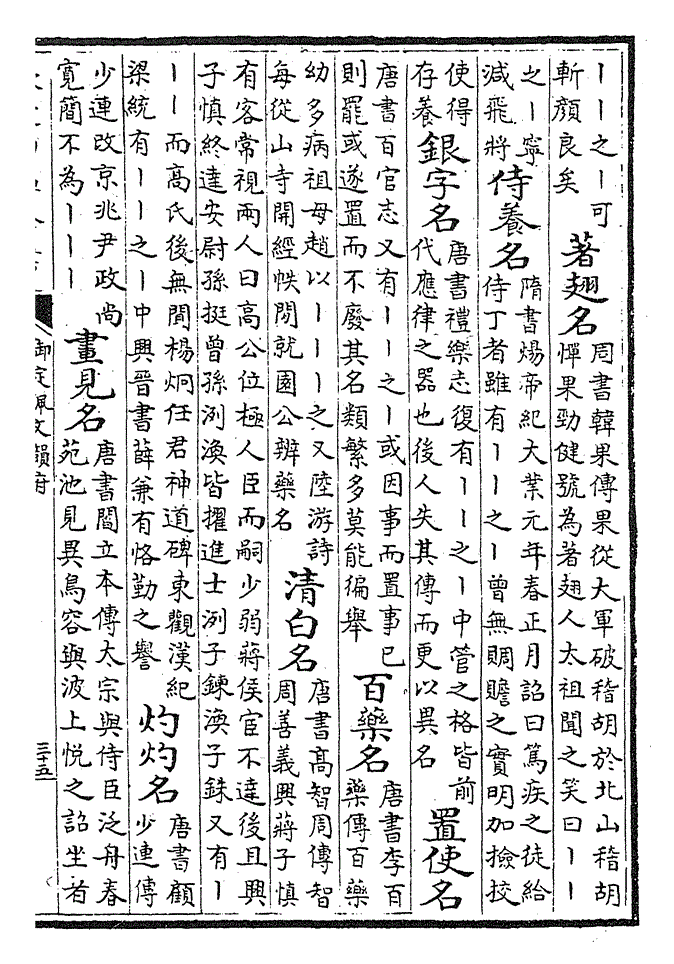 ｜｜之｜可
斬顏良矣
著翅名
周書韓果傳果從大軍破稽胡於北山稽胡
憚果勁健號為著翅人太祖聞之笑曰｜｜
之｜寧
減飛將
侍養名
隋書煬帝紀大業元年春正月詔曰篤疾之徒給
侍丁者雖有｜｜之｜曾無賙贍之實明加撿挍
使得
存養
銀字名
唐書禮樂志復有｜｜之｜中管之格皆前
代應律之器也後人失其傳而更以異名
置使名
唐書百官志又有｜｜之｜或因事而置事已
則罷或遂置而不廢其名類繁多莫能徧舉
百藥名
唐書李百
藥傳百藥
幼多病祖母趙以｜｜｜之又陸游詩
每從山寺開經帙閒就園公辨藥名
清白名
唐書高智周傳智
周善義興蔣子慎
有客常視兩人曰高公位極人臣而嗣少弱蔣侯宦不達後且興
子慎終達安尉孫挺曾孫洌渙皆擢進士洌子鍊渙子銖又有｜
｜｜而高氏後無聞楊炯任君神道碑東觀漢紀
梁統有｜｜之｜中興晉書薛兼有恪勤之譽
灼灼名
唐書顧
少連傳
少連改京兆尹政尚
寬簡不為｜｜｜
畫見名
唐書閻立本傳太宗與侍臣泛舟春
苑池見異鳥容與波上悅之詔坐者
御定佩文韻府
三十五